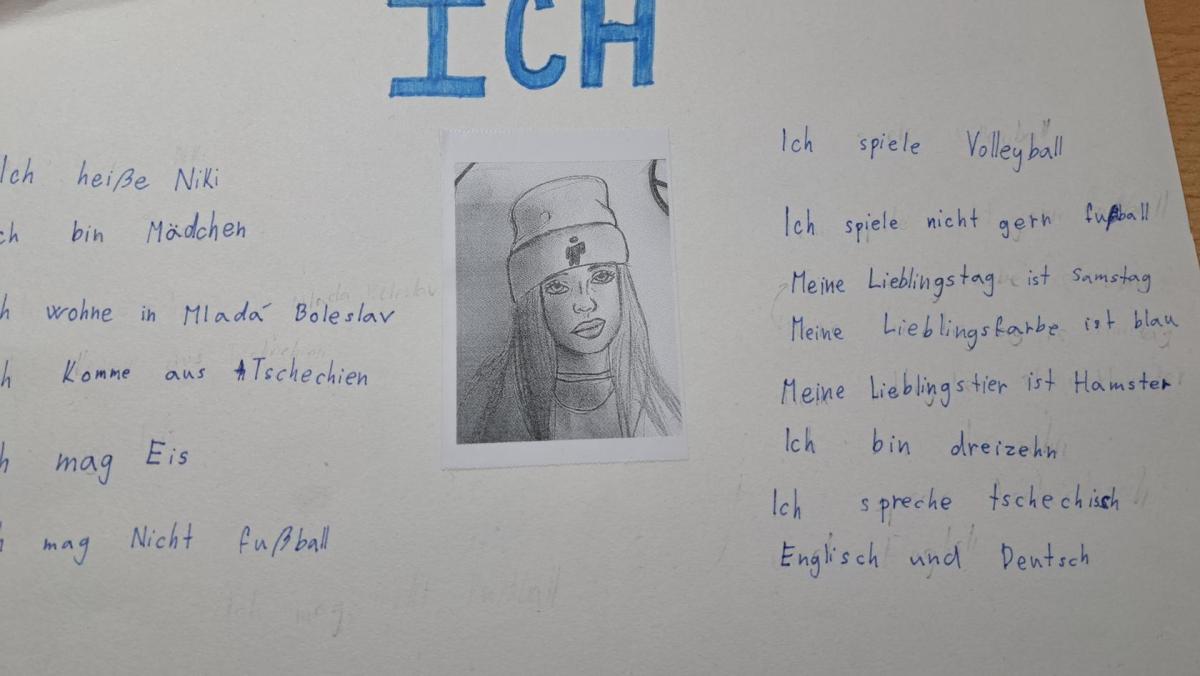 ICH
Ich heiße Niki
ch bin Mädchen
h wohne in Mladá Boleslav
h Komme aus Tschechien
h mag Eis
h mag Nicht fußball
Ich spiele Volleyball
Ich spiele nicht gern fußball
Meine Lieblingstag ist Samstag
Meine Lieblingsfarbe ist blau
Meine Lieblingstier ist Hamster
Ich bin dreizehn
Ich spreche tschechisch
Englisch und Deutsch